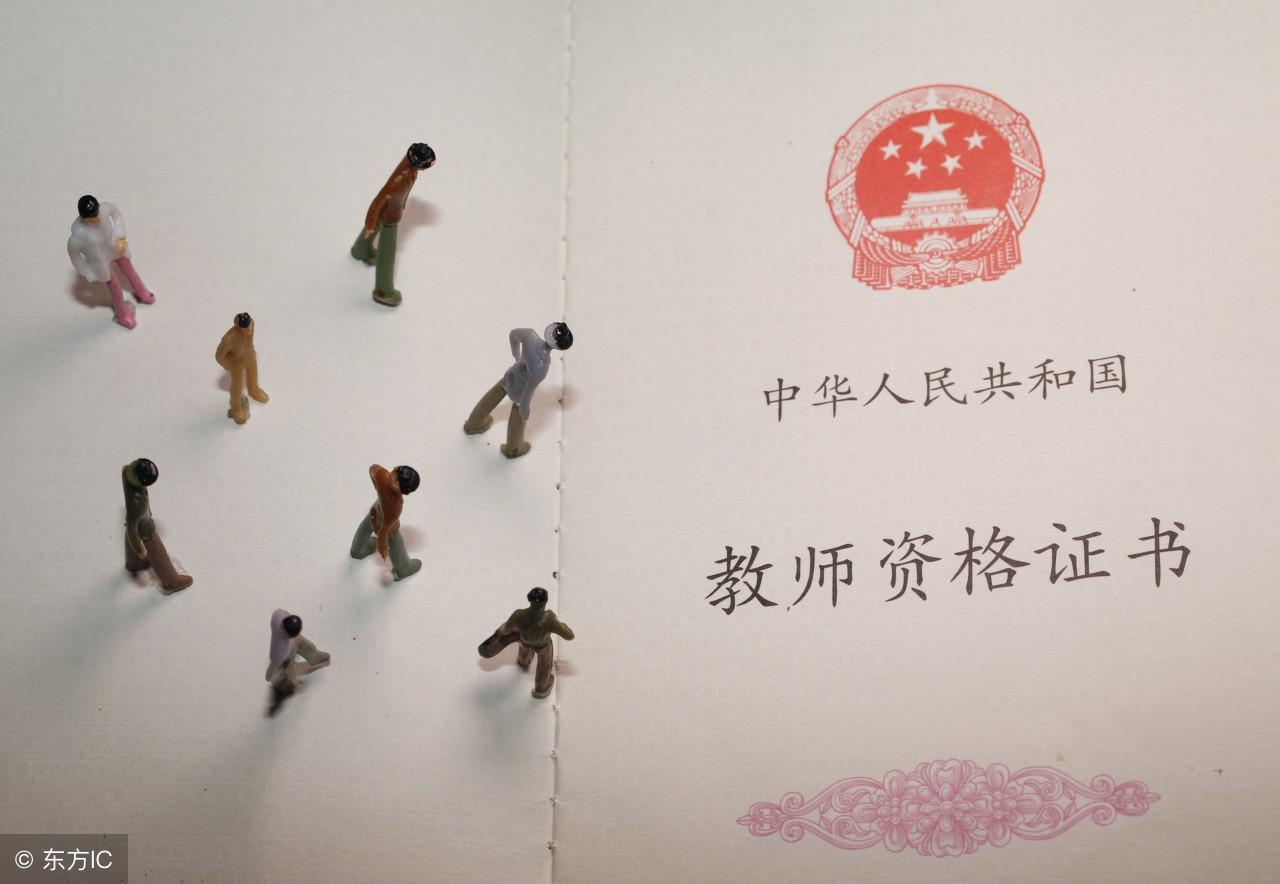 中华人民共和国
教师资格证书
© 东方IC